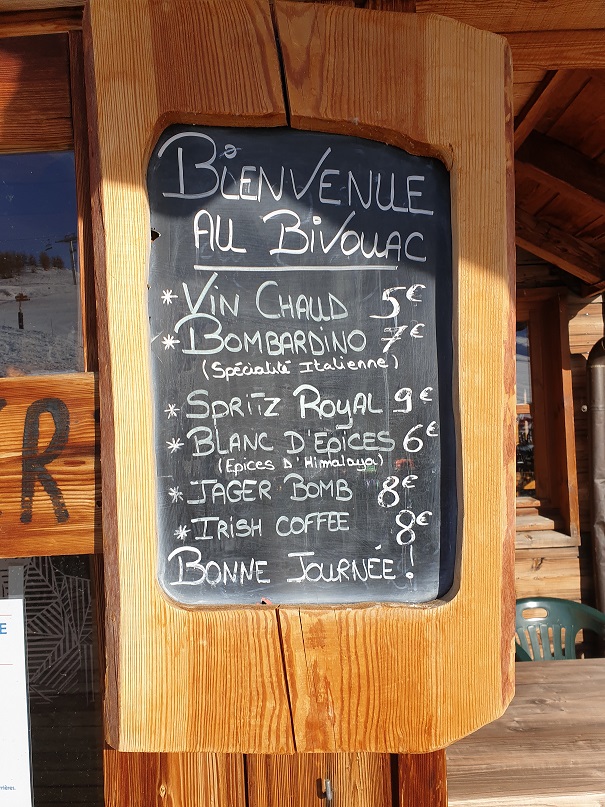 BIENVENUE
AU BIVOUAC
* VIN CHAUD 5€
* BOMBARDINO 7€
(Spécialité Italienne)
* SPRITZ ROYAL 9€
* BLANC D'EPICES 6€
(Epices D'Himalaya)
* JAGER BOMB 8€
* IRISH COFFEE 8€
BONNE JOURNÉE !
ER